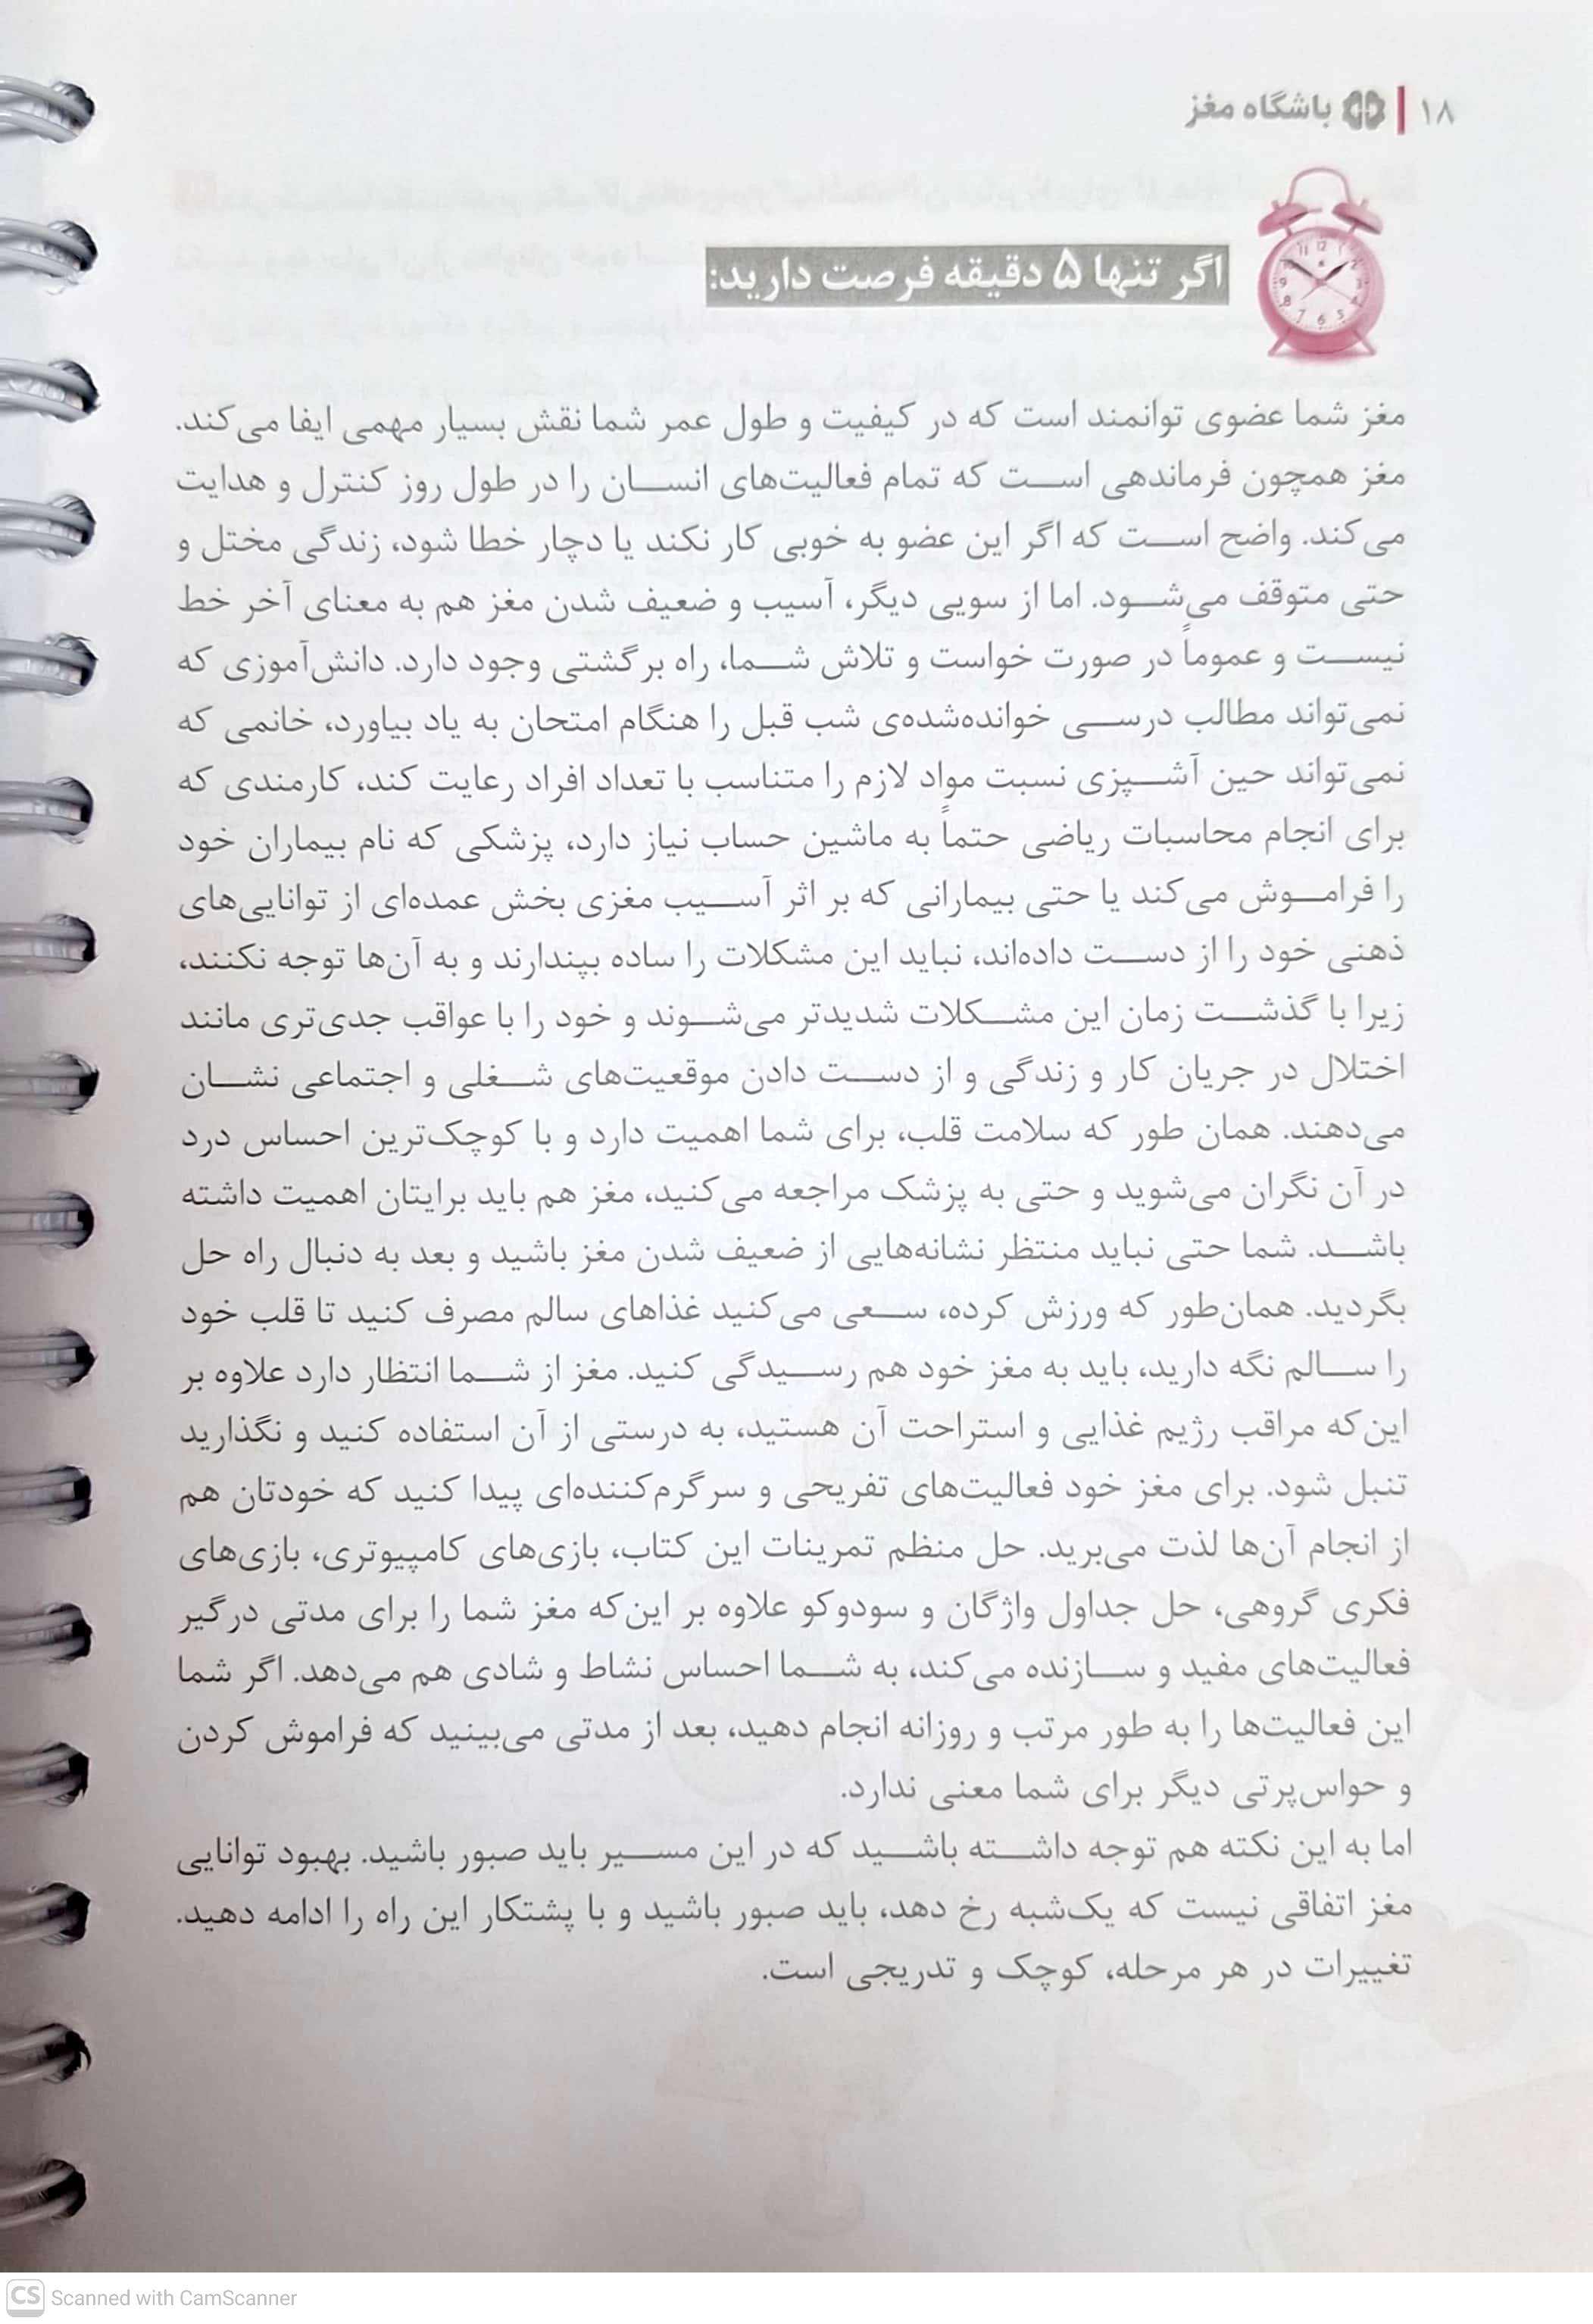 ۱۸ | باشگاه مغز
اگر تنها ۵ دقیقه فرصت دارید:
مغز شما عضوی توانمند است که در کیفیت و طول عمر شما نقش بسیار مهمی ایفا می‌کند.
مغز همچون فرماندهی است که تمام فعالیت‌های انسان را در طول روز کنترل و هدایت
می‌کند. واضح است که اگر این عضو به خوبی کار نکند یا دچار خطا شود، زندگی مختل و
حتی متوقف می‌شود. اما از سویی دیگر، آسیب و ضعیف شدن مغز هم به معنای آخر خط
نیست و عموماً در صورت خواست و تلاش شما، راه برگشتی وجود دارد. دانش‌آموزی که
نمی‌تواند مطالب درسی خوانده‌شده‌ی شب قبل را هنگام امتحان به یاد بیاورد، خانمی که
نمی‌تواند حین آشپزی نسبت مواد لازم را متناسب با تعداد افراد رعایت کند، کارمندی که
برای انجام محاسبات ریاضی حتماً به ماشین حساب نیاز دارد، پزشکی که نام بیماران خود
را فراموش می‌کند یا حتی بیمارانی که بر اثر آسیب مغزی بخش عمده‌ای از توانایی‌های
ذهنی خود را از دست داده‌اند، نباید این مشکلات را ساده بپندارند و به آن‌ها توجه نکنند،
زیرا با گذشت زمان این مشکلات شدیدتر می‌شوند و خود را با عواقب جدی‌تری مانند
اختلال در جریان کار و زندگی و از دست دادن موقعیت‌های شغلی و اجتماعی نشان
می‌دهند. همان طور که سلامت قلب، برای شما اهمیت دارد و با کوچک‌ترین احساس درد
در آن نگران می‌شوید و حتی به پزشک مراجعه می‌کنید، مغز هم باید برایتان اهمیت داشته
باشد. شما حتی نباید منتظر نشانه‌هایی از ضعیف شدن مغز باشید و بعد به دنبال راه حل
بگردید. همان‌طور که ورزش کرده، سعی می‌کنید غذاهای سالم مصرف کنید تا قلب خود
را سالم نگه دارید، باید به مغز خود هم رسیدگی کنید. مغز از شما انتظار دارد علاوه بر
این‌که مراقب رژیم غذایی و استراحت آن هستید، به درستی از آن استفاده کنید و نگذارید
تنبل شود. برای مغز خود فعالیت‌های تفریحی و سرگرم‌کننده‌ای پیدا کنید که خودتان هم
از انجام آن‌ها لذت می‌برید. حل منظم تمرینات این کتاب، بازی‌های کامپیوتری، بازی‌های
فکری گروهی، حل جداول واژگان و سودوکو علاوه بر این‌که مغز شما را برای مدتی درگیر
فعالیت‌های مفید و سازنده می‌کند، به شما احساس نشاط و شادی هم می‌دهد. اگر شما
این فعالیت‌ها را به طور مرتب و روزانه انجام دهید، بعد از مدتی می‌بینید که فراموش کردن
و حواس‌پرتی دیگر برای شما معنی ندارد.
اما به این نکته هم توجه داشته باشید که در این مسیر باید صبور باشید. بهبود توانایی
مغز اتفاقی نیست که یک‌شبه رخ دهد، باید صبور باشید و با پشتکار این راه را ادامه دهید.
تغییرات در هر مرحله، کوچک و تدریجی است.
CS Scanned with CamScanner